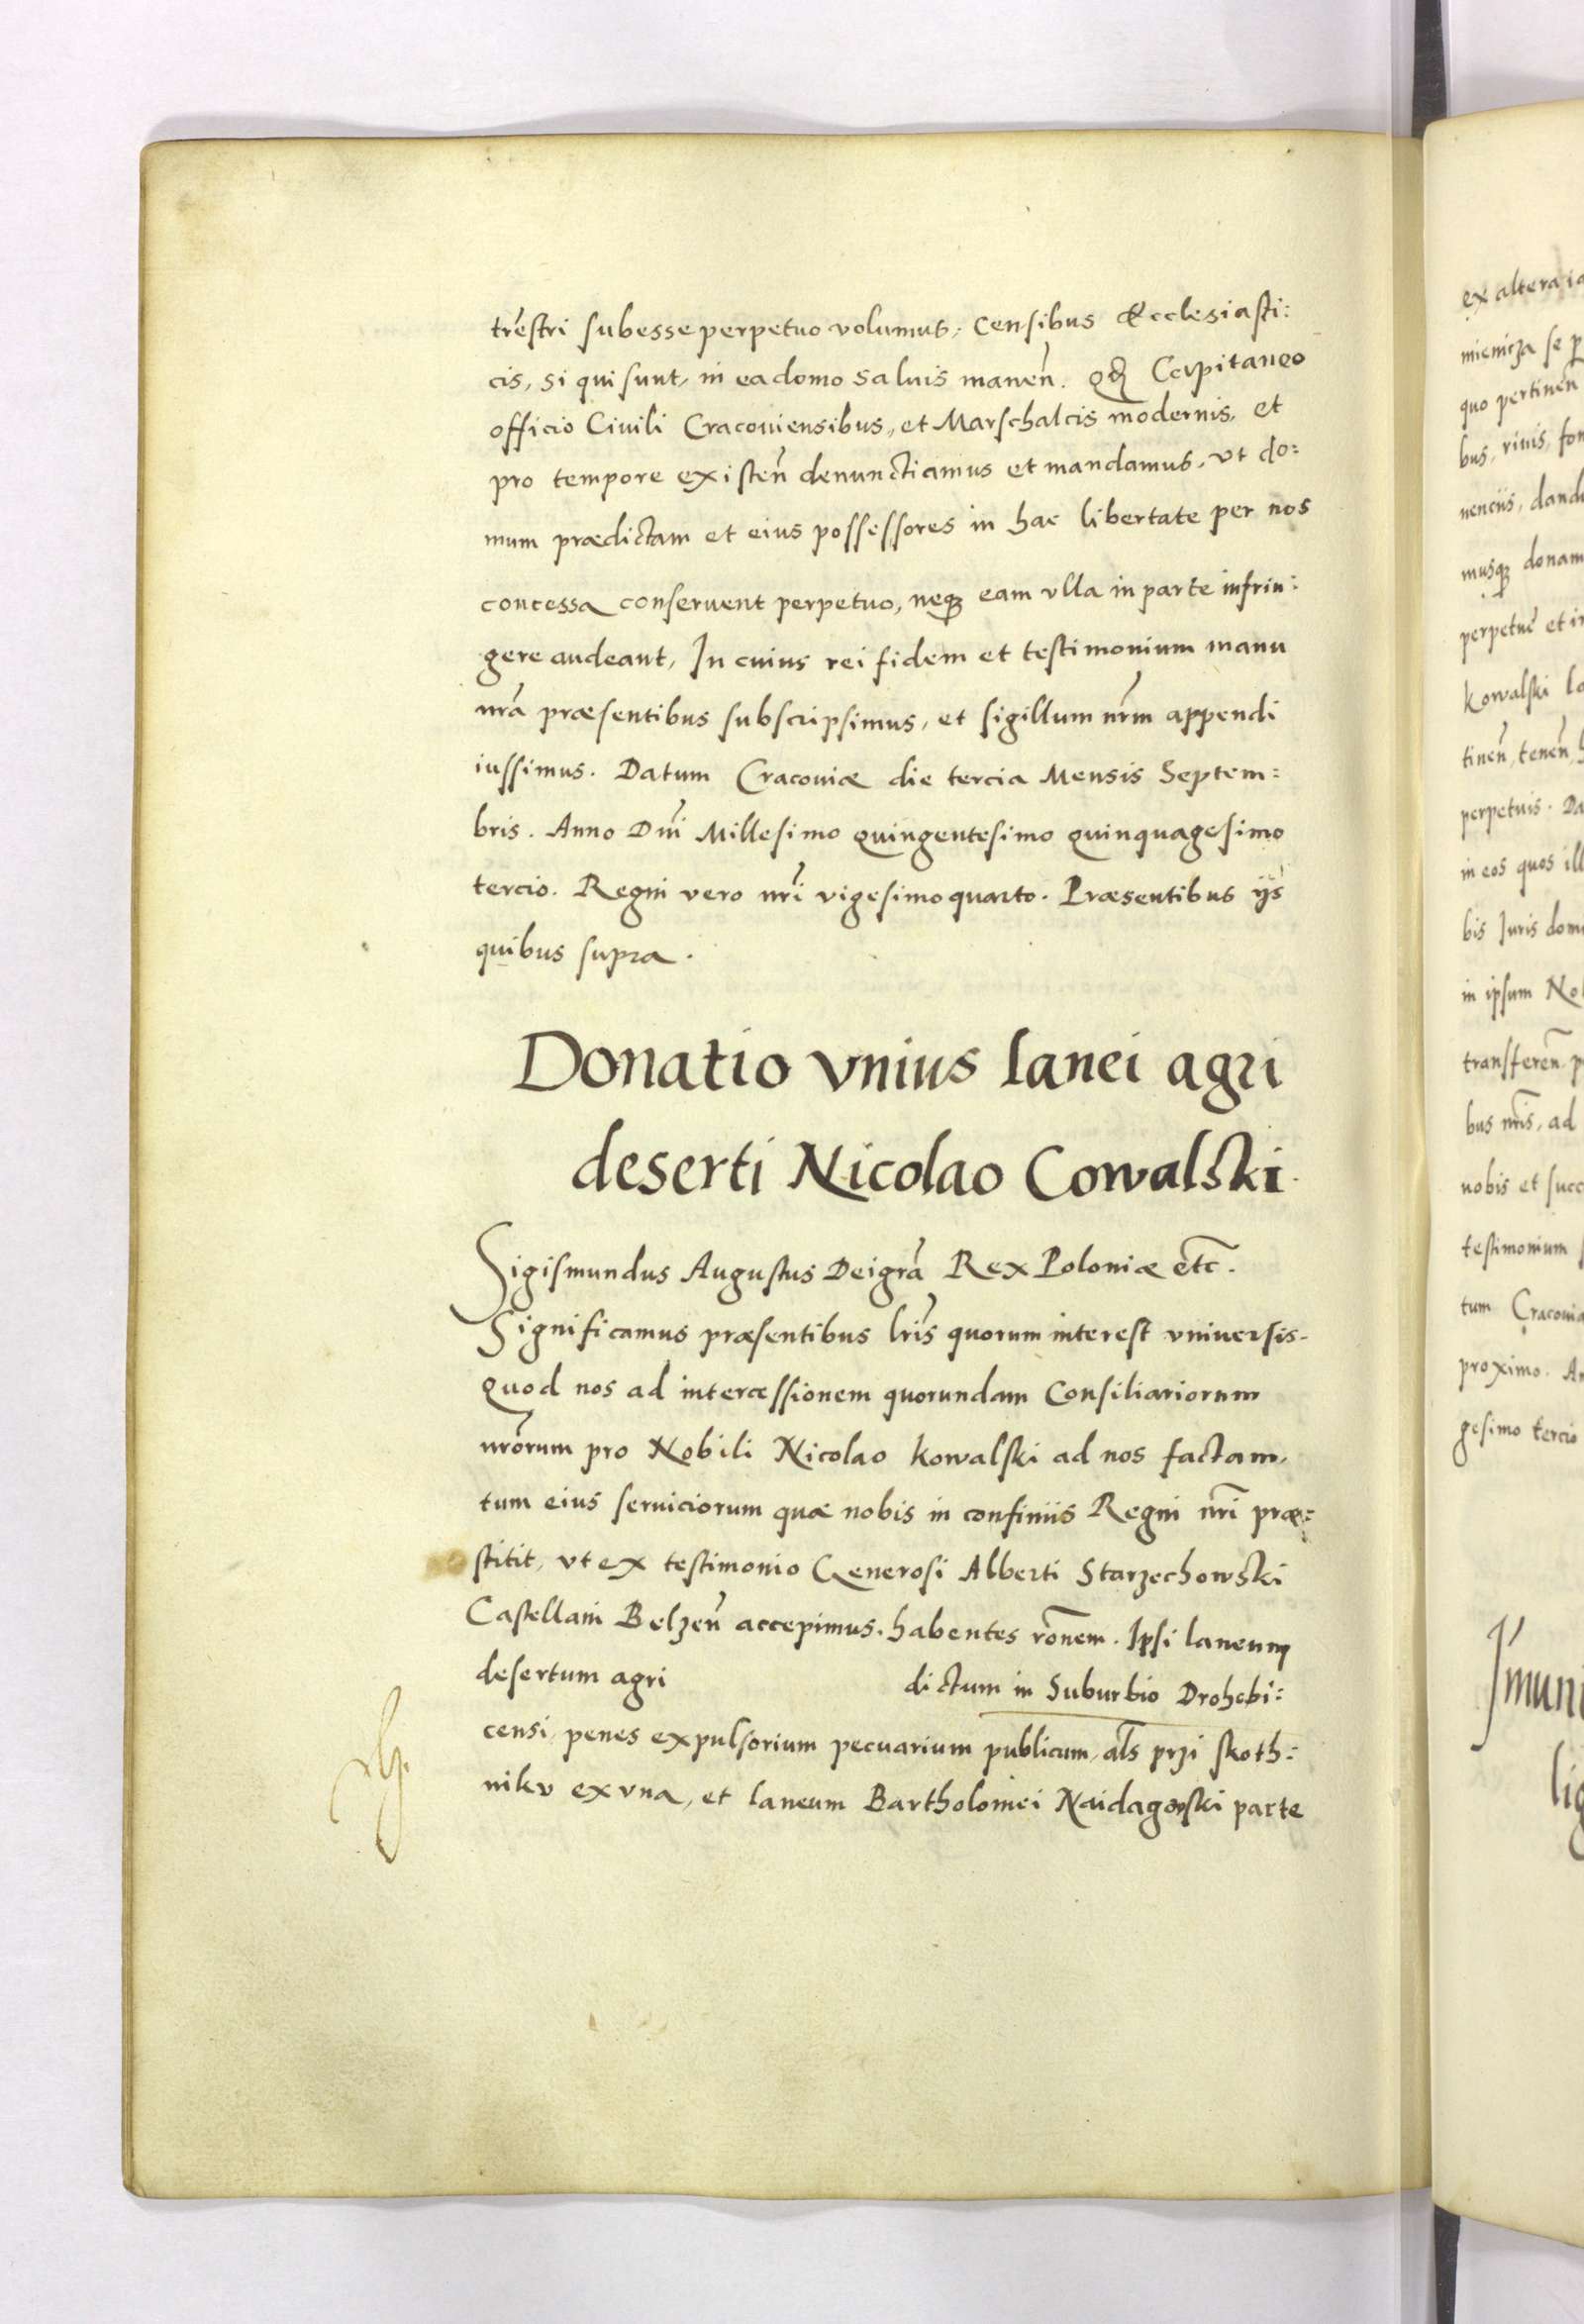 trẽstri subesse perpetuo volumus, Censibus Ecclesiasti:
cis, si qui sunt, in ea domo saluis manen̄. Capitaneo
officio Ciuili Cracouiensibus, et Marschalcis modernis, et
pro tempore existen̄ denunctiamus et mandamus, vt do:
mum prædictam et eius possessores in hac libertate per nos
concessa conseruent perpetuo, neq₃ eam vlla in parte infrin:
gere audeant, In cuius rei fidem et testimonium manu
nr̃a præsentibus subscripsimus, et sigillum nr̃m appendi
iussimus. Datum Cracouiæ die tercia Mensis Septem=
bris. Anno Dnĩ Millesimo quingentesimo quinquagesimo
tercio. Regni vero nr̃i vigesimoquarto. Præsentibus ijs
quibus supra.
Donatio vnius lanei agri
deserti Nicolao Cowalski.
Sigismundus Augustus Dei gr̃a Rex Poloniæ etc̃.
Significamus præsentibus lr̃is quorum interest vniuersis.
quod nos ad intercessionem quorundam Consiliariorum
nr̃orum pro Nobili Nicolao Kowalski ad nos factam,
tum eius seruiciorum quæ nobis in confiniis Regni nr̃i præ:
stitit, vt ex testimonio Generosi Alberti Starzechowski
Castellani Belzen̄ accepimus, habentes rõnem. Ipsi laneum
desertum agri dictum in Suburbio Drohobi:
censi, penes expulsorium pecuarium publicum, al̃s przi skoth:
niku ex vna, et laneum Bartholomei Naidagowski parte
ex altera ia
se p
quo pertinen̄
bus, riuis, fon
nenciis, dand
musq₃ donam
perpetuè et ir
Kowalski la
tinen̄, tenen̄, h
perpetuis. Da
in eos quos ill
bis Juris dom
in ipsum No
transferen̄ p
bus nr̃is, ad
nobis et succ
testimonium s
tum Cracouiæ
proximo. An
gesimo tercio
Jmuni
lig